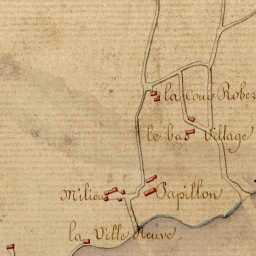 la Cour Rober
le bas Village
Milieu
Papillon
la Ville Neuve